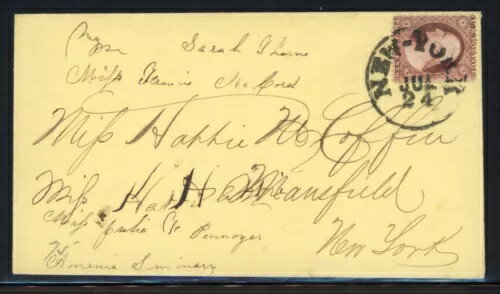 Sarah Thorne
Miss Francis McCord
NEW-YORK
JUL
24
Miss Hattie W Coffin
Miss Hattie Mansfield
Miss Julia V Pennoyer
New York
Amenia Siminary